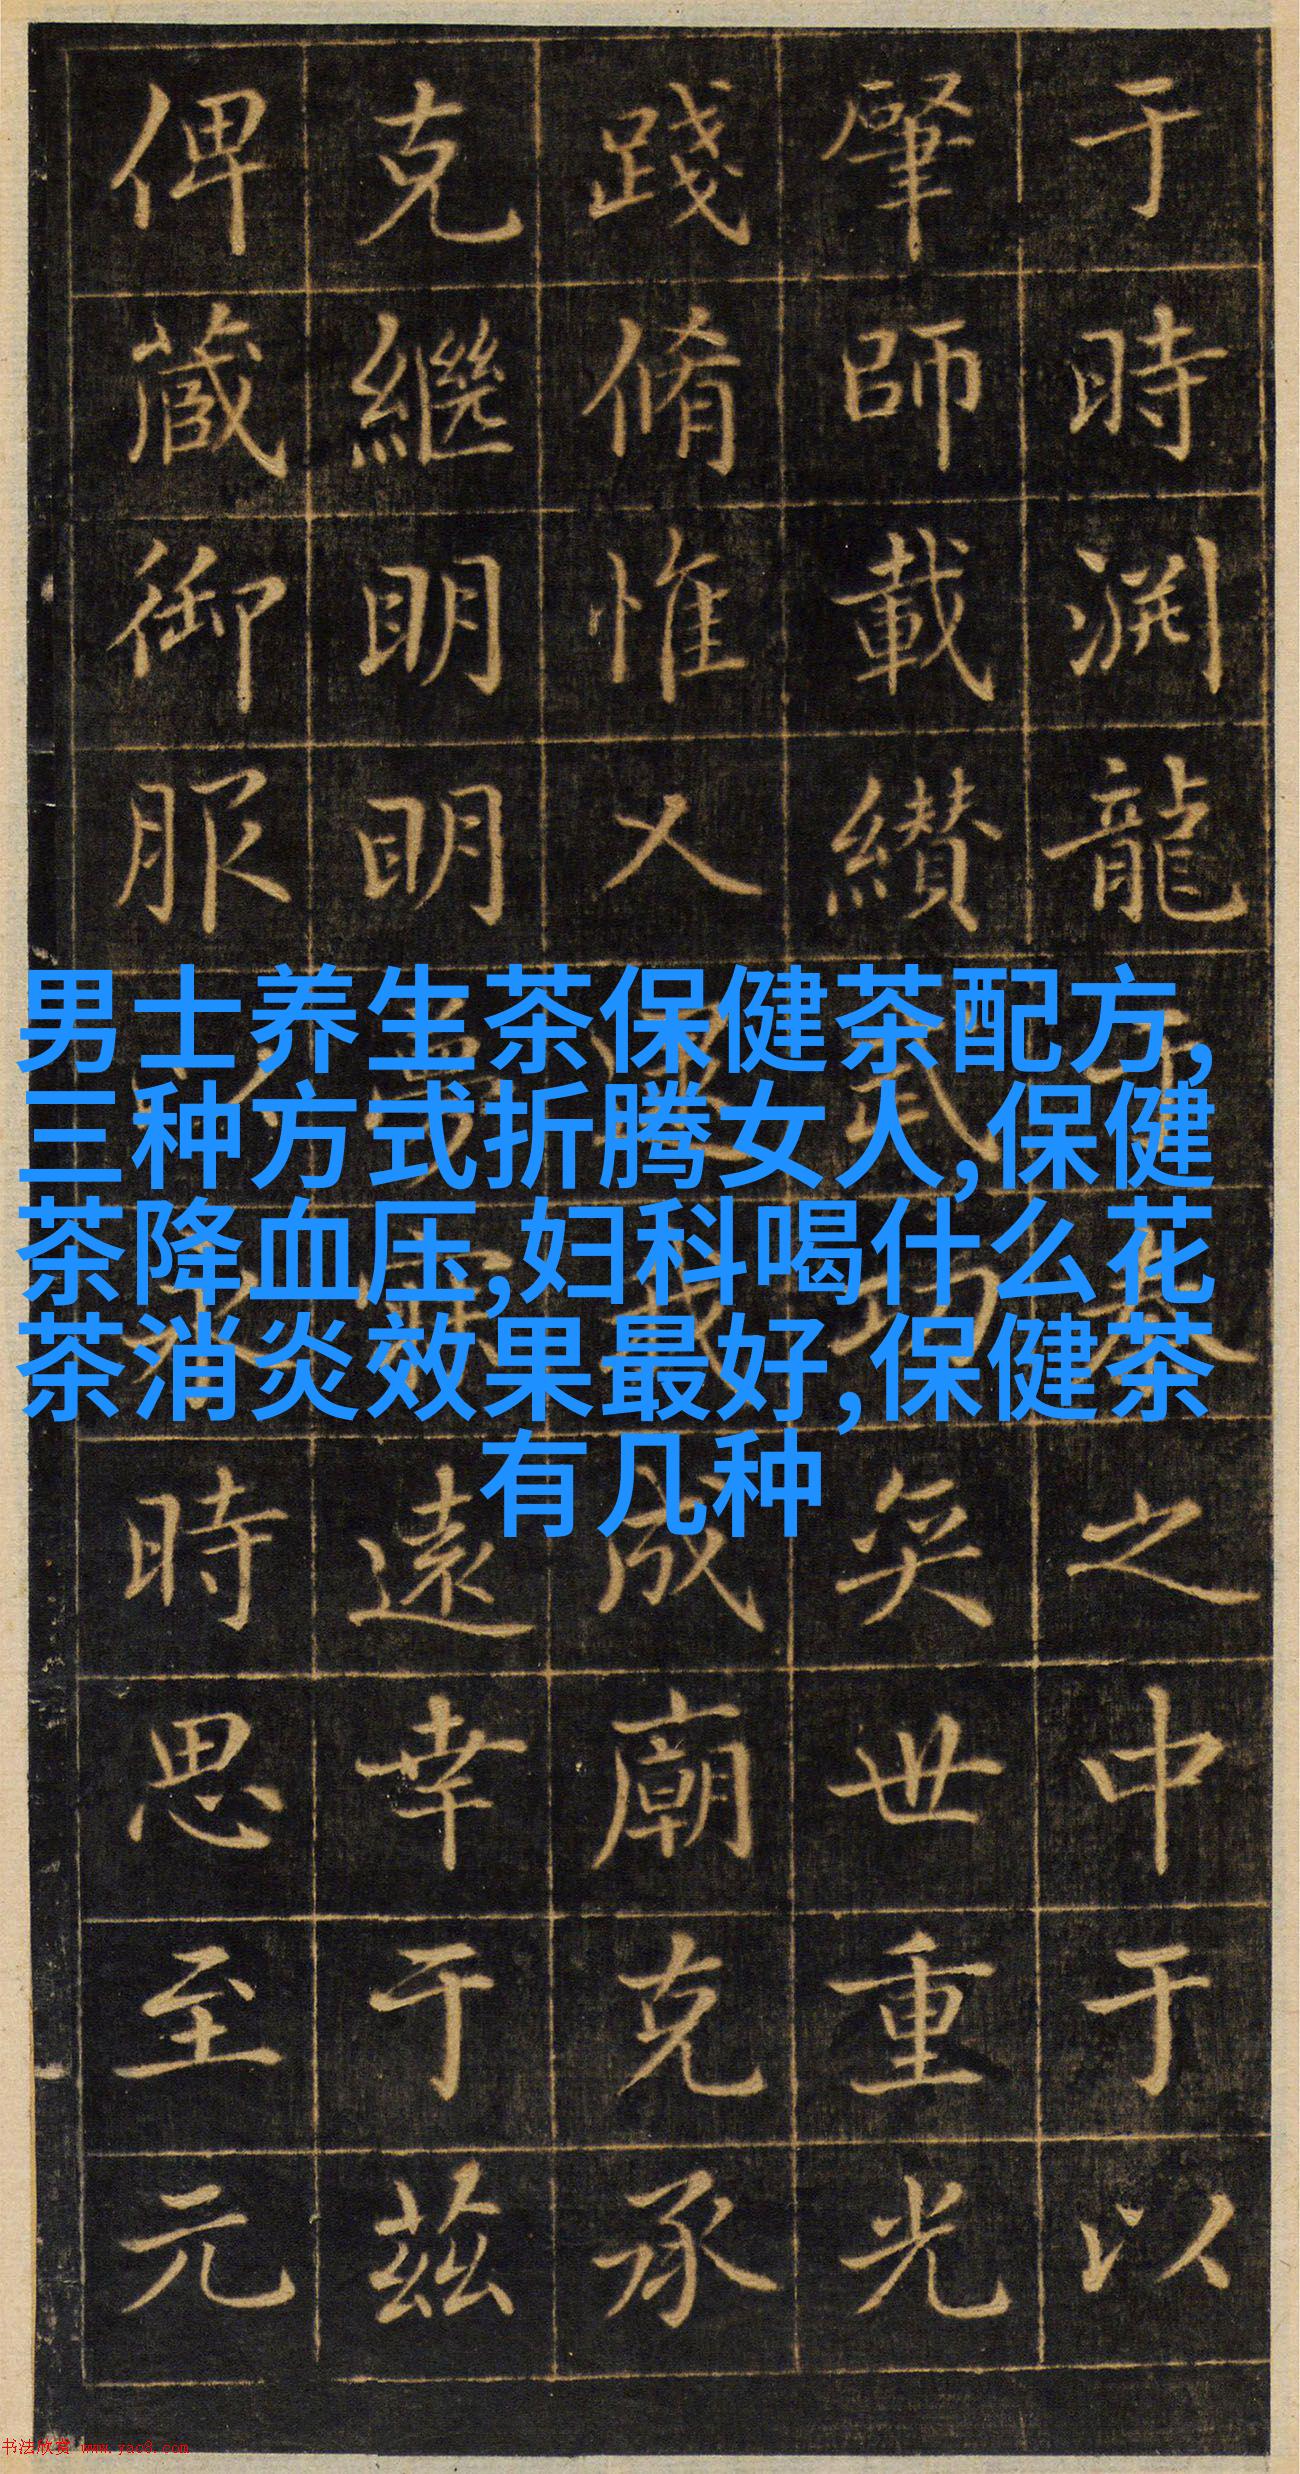 于時渊龍之中于以
肇師載纘武功奕世重光
踐脩惟乂我成廟克承
克繼明明遠幸于茲
俾蕆御服以時思至元
男士养生茶保健茶配方,
三种方式折腾女人,保健
茶降血压,妇科喝什么花
茶消炎效果最好,保健茶
有几种
书法欣赏 www.yac8.com